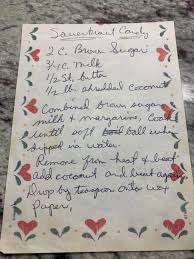 Sauerkraut Candy
2 C. Brown Sugar
3/4 C. Milk
1/2 St. butter
1/2 lb. shredded coconut
Combined brown sugar,
milk & margarine, Cook
until soft ball when
dipped in water.
Remove from heat & beat
add coconut and beat again
Drop by teaspoon onto wax
Paper,